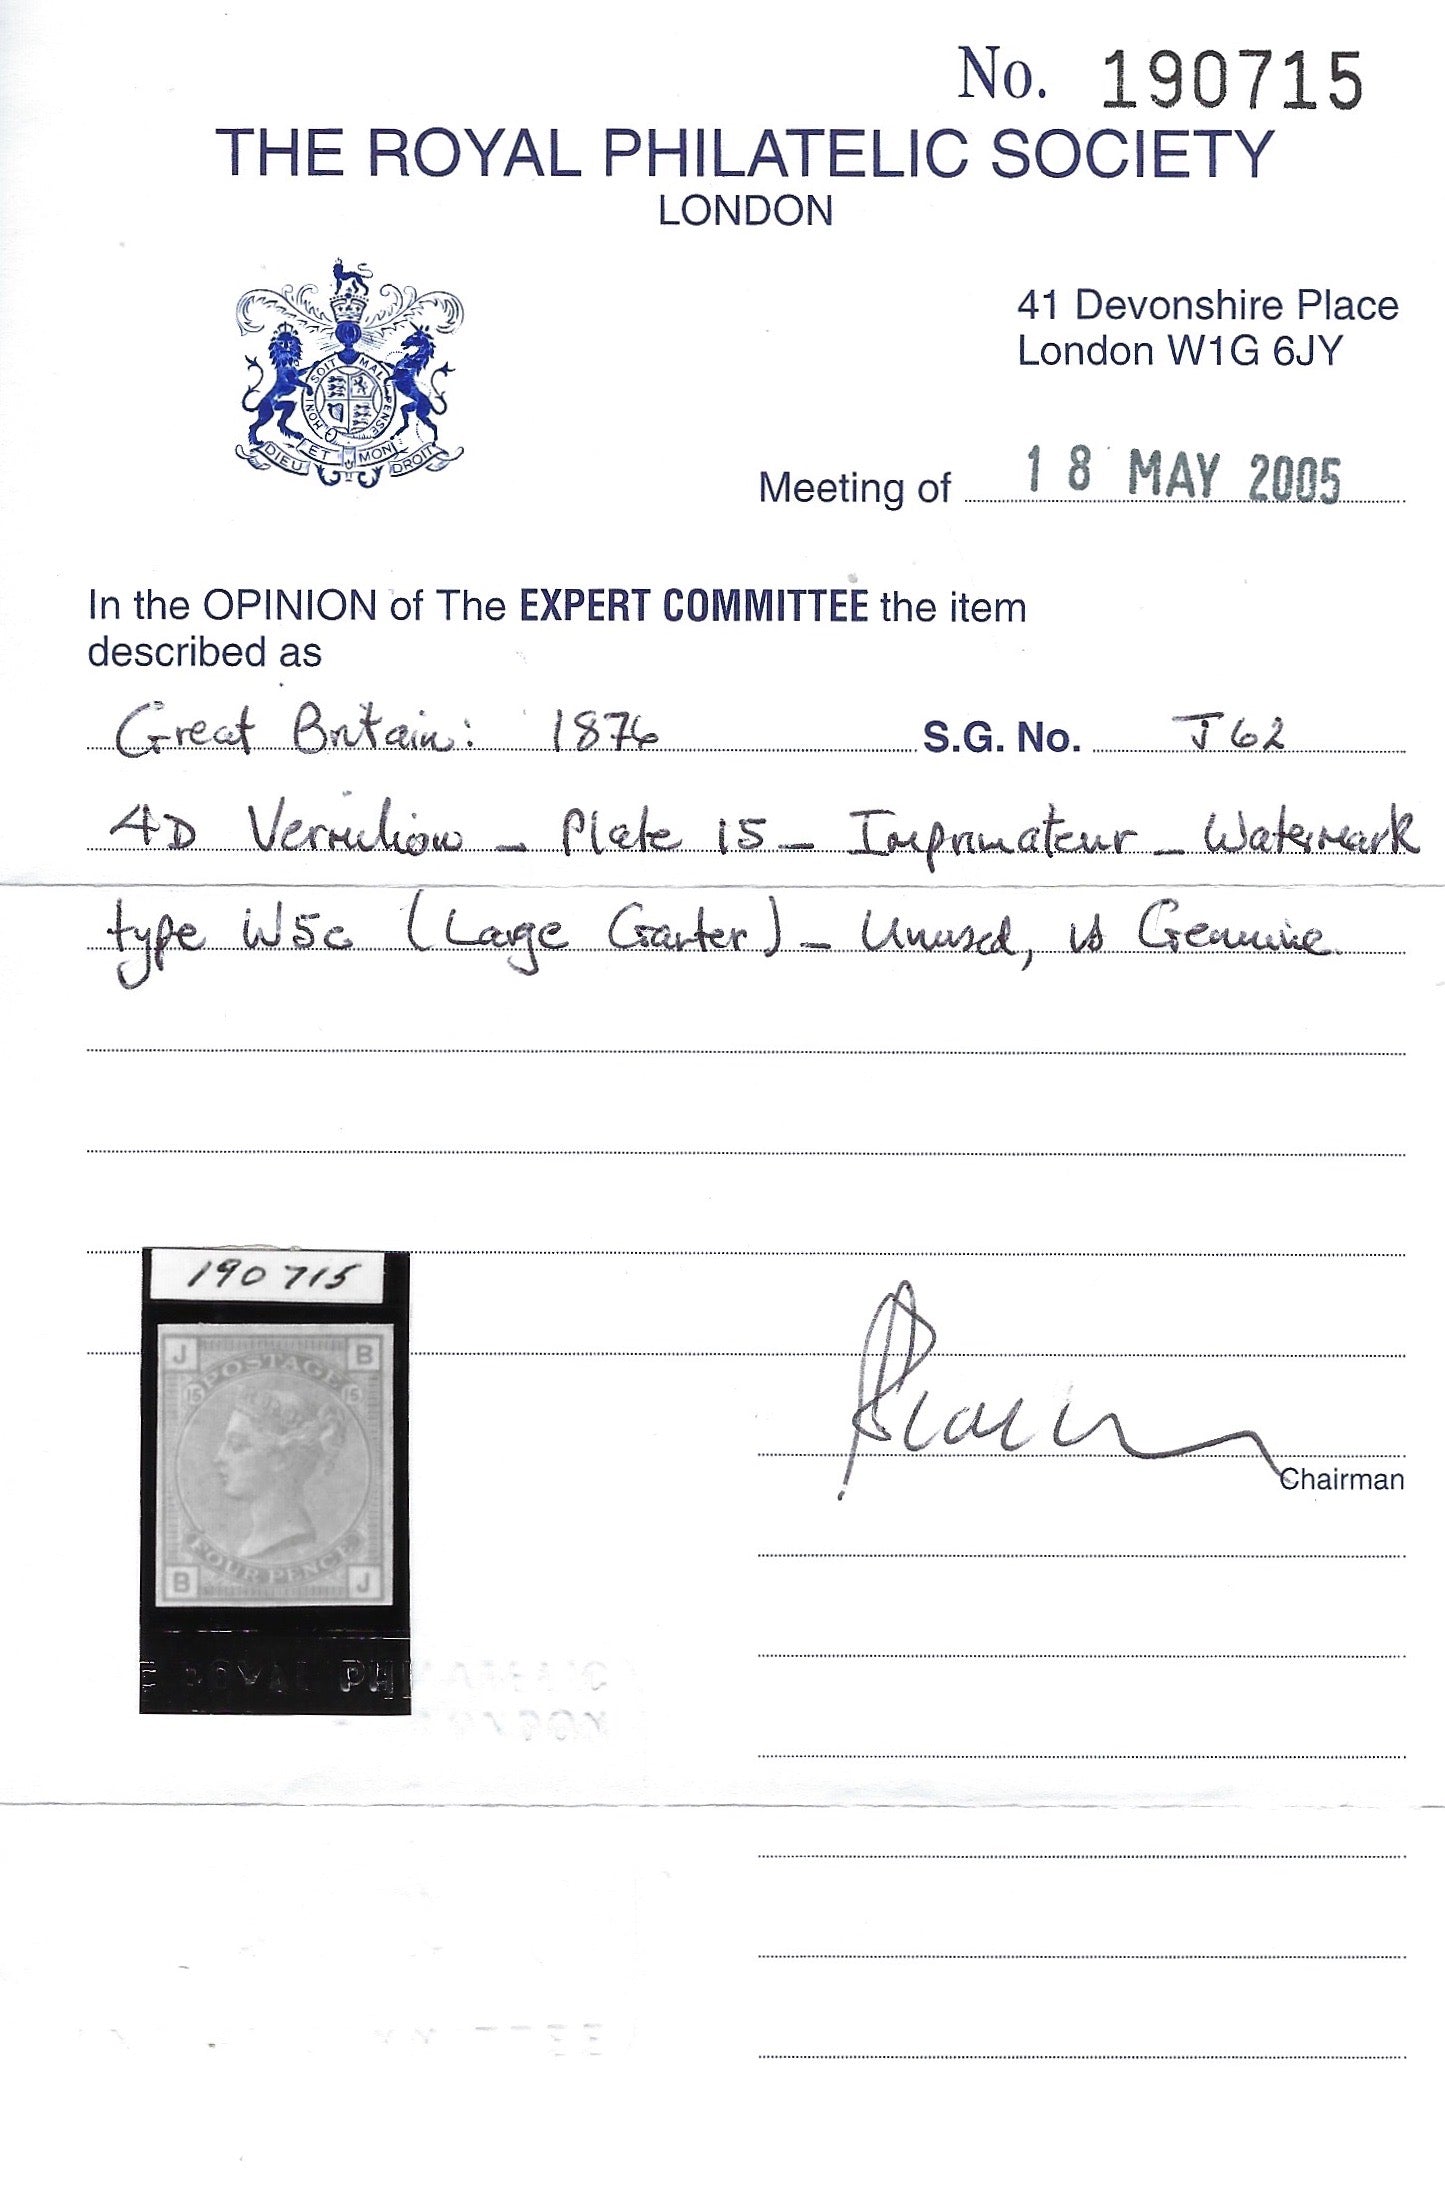 No. 190715
THE ROYAL PHILATELIC SOCIETY
LONDON
HONI SOIT MAL PENSE
DIEU ET MON DROIT
41 Devonshire Place
London W1G 6JY
Meeting of 18 MAY 2005
In the OPINION of The EXPERT COMMITTEE the item
described as
Great Britain: 1876 S.G. No. J62
4D Vermilion - Plate 15 - Imprimateur - Watermark
type W5c (Large Garter) - Unused, is Genuine
190715
J B
POSTAGE
15 15
FOUR PENCE
B J
E ROYAL PHI
Chairman